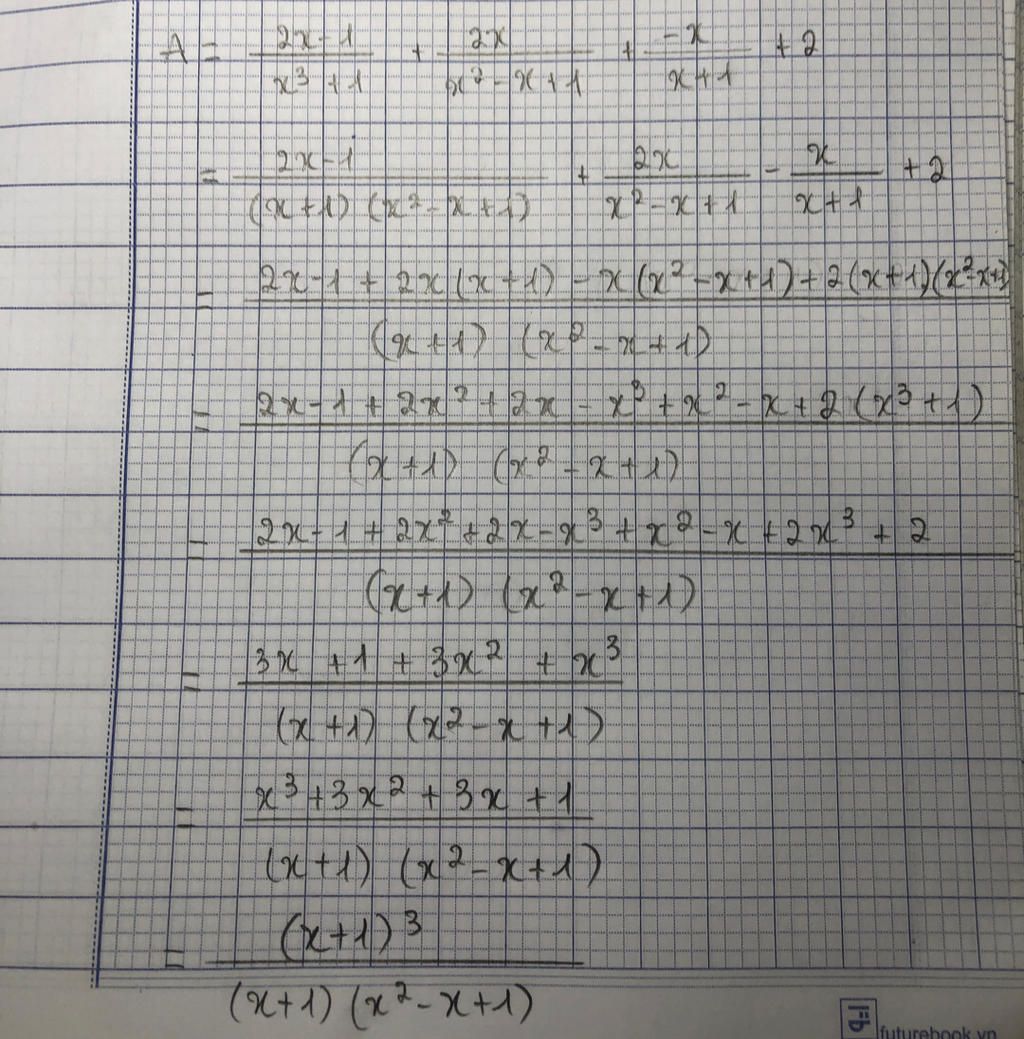 A = \frac{2x-1}{x^3+1} + \frac{2x}{x^2-x+1} + \frac{-x}{x+1} + 2
= \frac{2x-1}{(x+1)(x^2-x+1)} + \frac{2x}{x^2-x+1} - \frac{x}{x+1} + 2
= \frac{2x-1+2x(x+1)-x(x^2-x+1)+2(x+1)(x^2-x+1)}{(x+1)(x^2-x+1)}
= \frac{2x-1+2x^2+2x-x^3+x^2-x+2(x^3+1)}{(x+1)(x^2-x+1)}
= \frac{2x-1+2x^2+2x-x^3+x^2-x+2x^3+2}{(x+1)(x^2-x+1)}
= \frac{3x+1+3x^2+x^3}{(x+1)(x^2-x+1)}
= \frac{x^3+3x^2+3x+1}{(x+1)(x^2-x+1)}
= \frac{(x+1)^3}{(x+1)(x^2-x+1)}
futurebook.vn